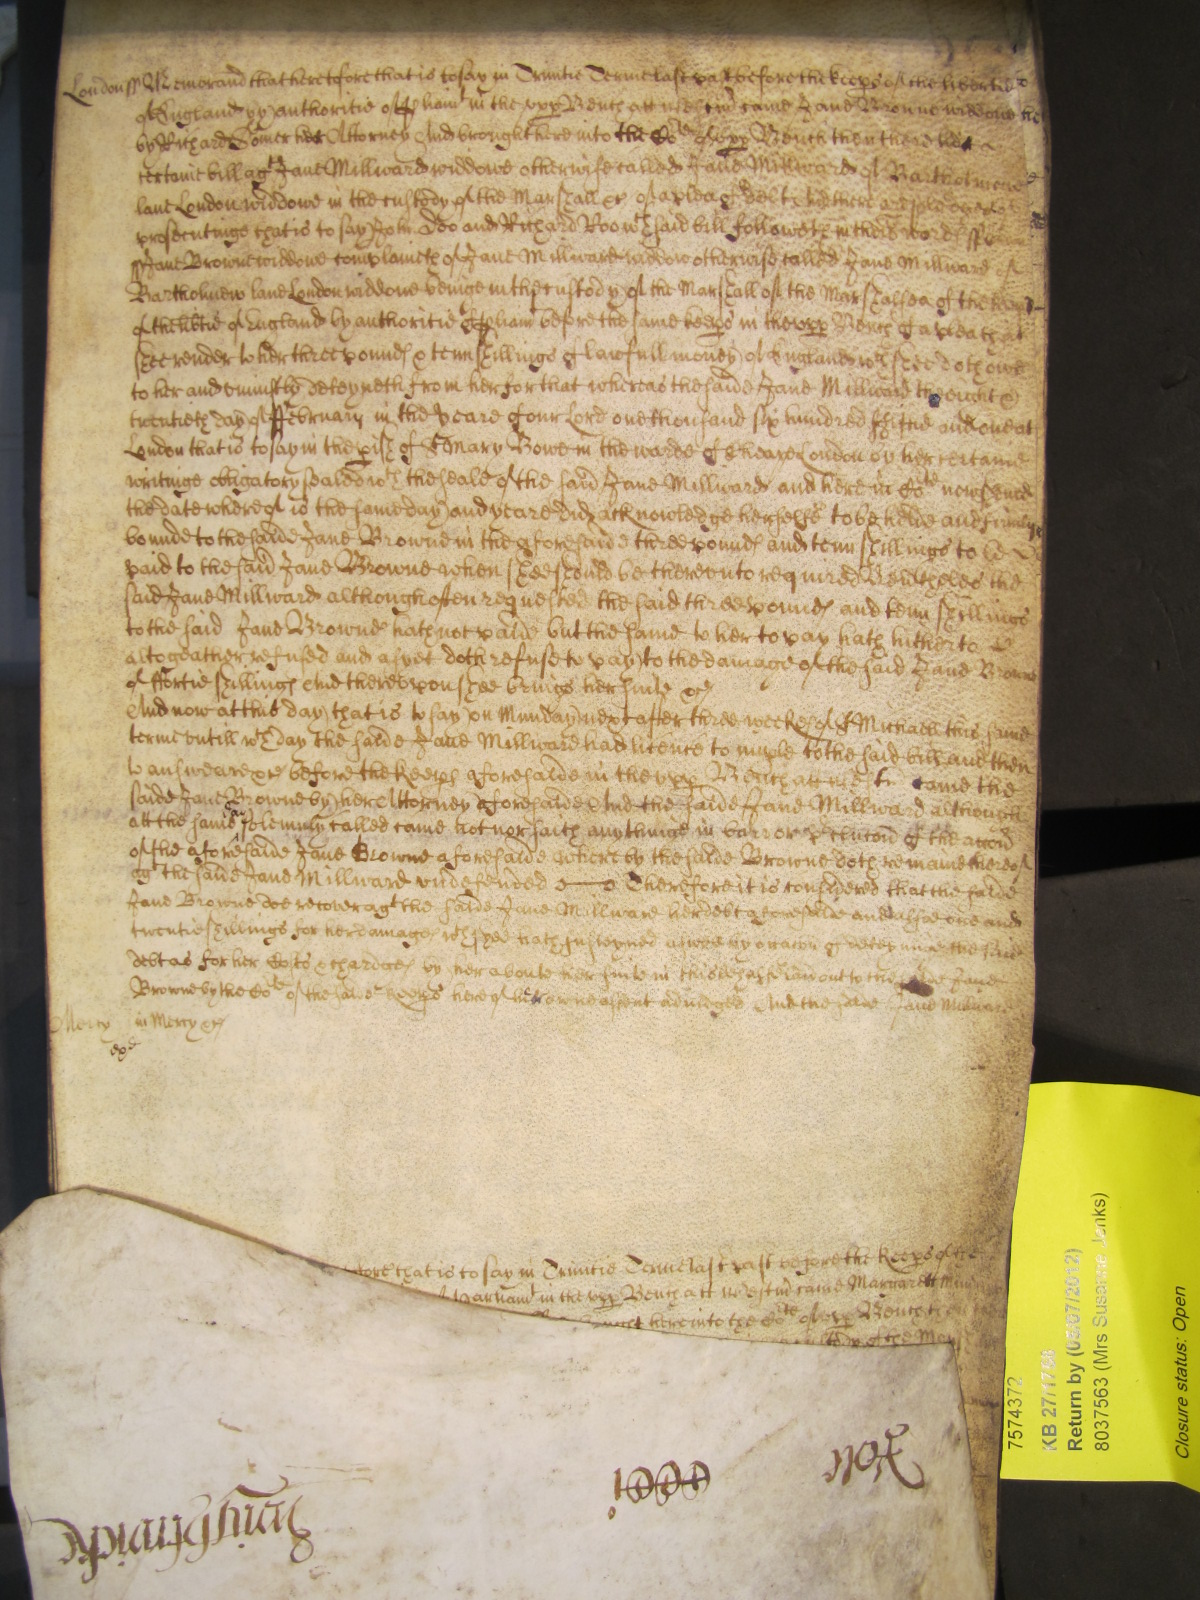 London ss Memorand that heretofore that is to say in Trinitie Terme last past before the keeps of the libertie
of England by authoritie of Parliamt in the upp Bench att Westm came Jane Browne widdowe
by Richard Somer her Attorney And brought here into the Cot of upp Bench then there her
certaine bill agt Jane Millward widdowe otherwise called Jane Millward of Bartholmewe
lane London widdowe in the custody of the Marshall &c of a plea of debt And there are pledges of
prosecutinge that is to say John Doo and Richard Roo wch said bill followeth in theis words ss London
ss Jane Browne widdowe complaineth of Jane Millward widdow otherwise called Jane Millward of
Bartholmew lane London widdowe beinge in the custody of the Marshall of the Marshalsea of the keeps
of the libtie of England by authoritie of Parliamt before the same keeps in the upp Bench of a plea that
shee render to her three pounds & tenn shillings of lawfull money of England wch shee doth owe
to her and uniustly deteyneth from her for that whereas the saide Jane Millward the eight &
twentieth day of ffebruary in the yeare of our Lord one thousand six hundred fiftie and one att
London that is to say in the pish of St Mary Bowe in the warde of Cheape London by her certaine
writinge obligatory sealed wth the seale of the said Jane Millward and here in Cot now shewed
the date whereof is the same day and yeare did acknowledge herselfe to be helde and firmly
bounde to the saide Jane Browne in the aforesaide three pounds and tenn shillings to be
paid to the said Jane Browne when shee should be thereunto required Nevertheles the
said Jane Millward although often requested the said three pounds and tenn shillings
to the said Jane Browne hath not paide but the same to her to pay hath hitherto
altogeather refused and as yet doth refuse to pay to the damage of the said Jane Browne
of ffortie shillings And thereupon shee brings her suite &c
And now at this day that is to say on Munday next after three weekes of St Michaell this same
terme untill wch day the saide Jane Millward had licence to imple to the said bill and then
to answeare &c before the keeps aforesaide in the upp Bench att Westm came the
saide Jane Browne by her Attorney aforesaide And the saide Jane Millward although
att the same day solemnly called came not nor saith anythinge in barr or pclucon of the accon
of the aforesaide Jane Browne aforesaide whereby the saide Browne doth remaine thereof
agt the saide Jane Millward undefended Therefore it is considered that the saide
Jane Browne doe recover agt the saide Jane Millward her debt aforesaide and alsoe one and
twentie shillings for her damages wch shee hath susteyned aswell by occasion of deteyninge the said
debt as for her Costs & chardges by her aboute her suite in this behalfe laid out to the saide Jane
Browne by the Cot of the saide keeps here of her owne assent adiudged And the saide Jane Millward
Mercy in Mercy &c
exd
fore that is to say in Trinitie Terme last past before the Keeps of the
Parliamt in the upp Bench att Westm came Margarett
brought here into the Cot of upp Bench then
custody of the Mars
Rot
1000
7574372
KB 27/1788
Return by (05/07/2012)
8037563 (Mrs Susanne Jenks)
Closure status: Open